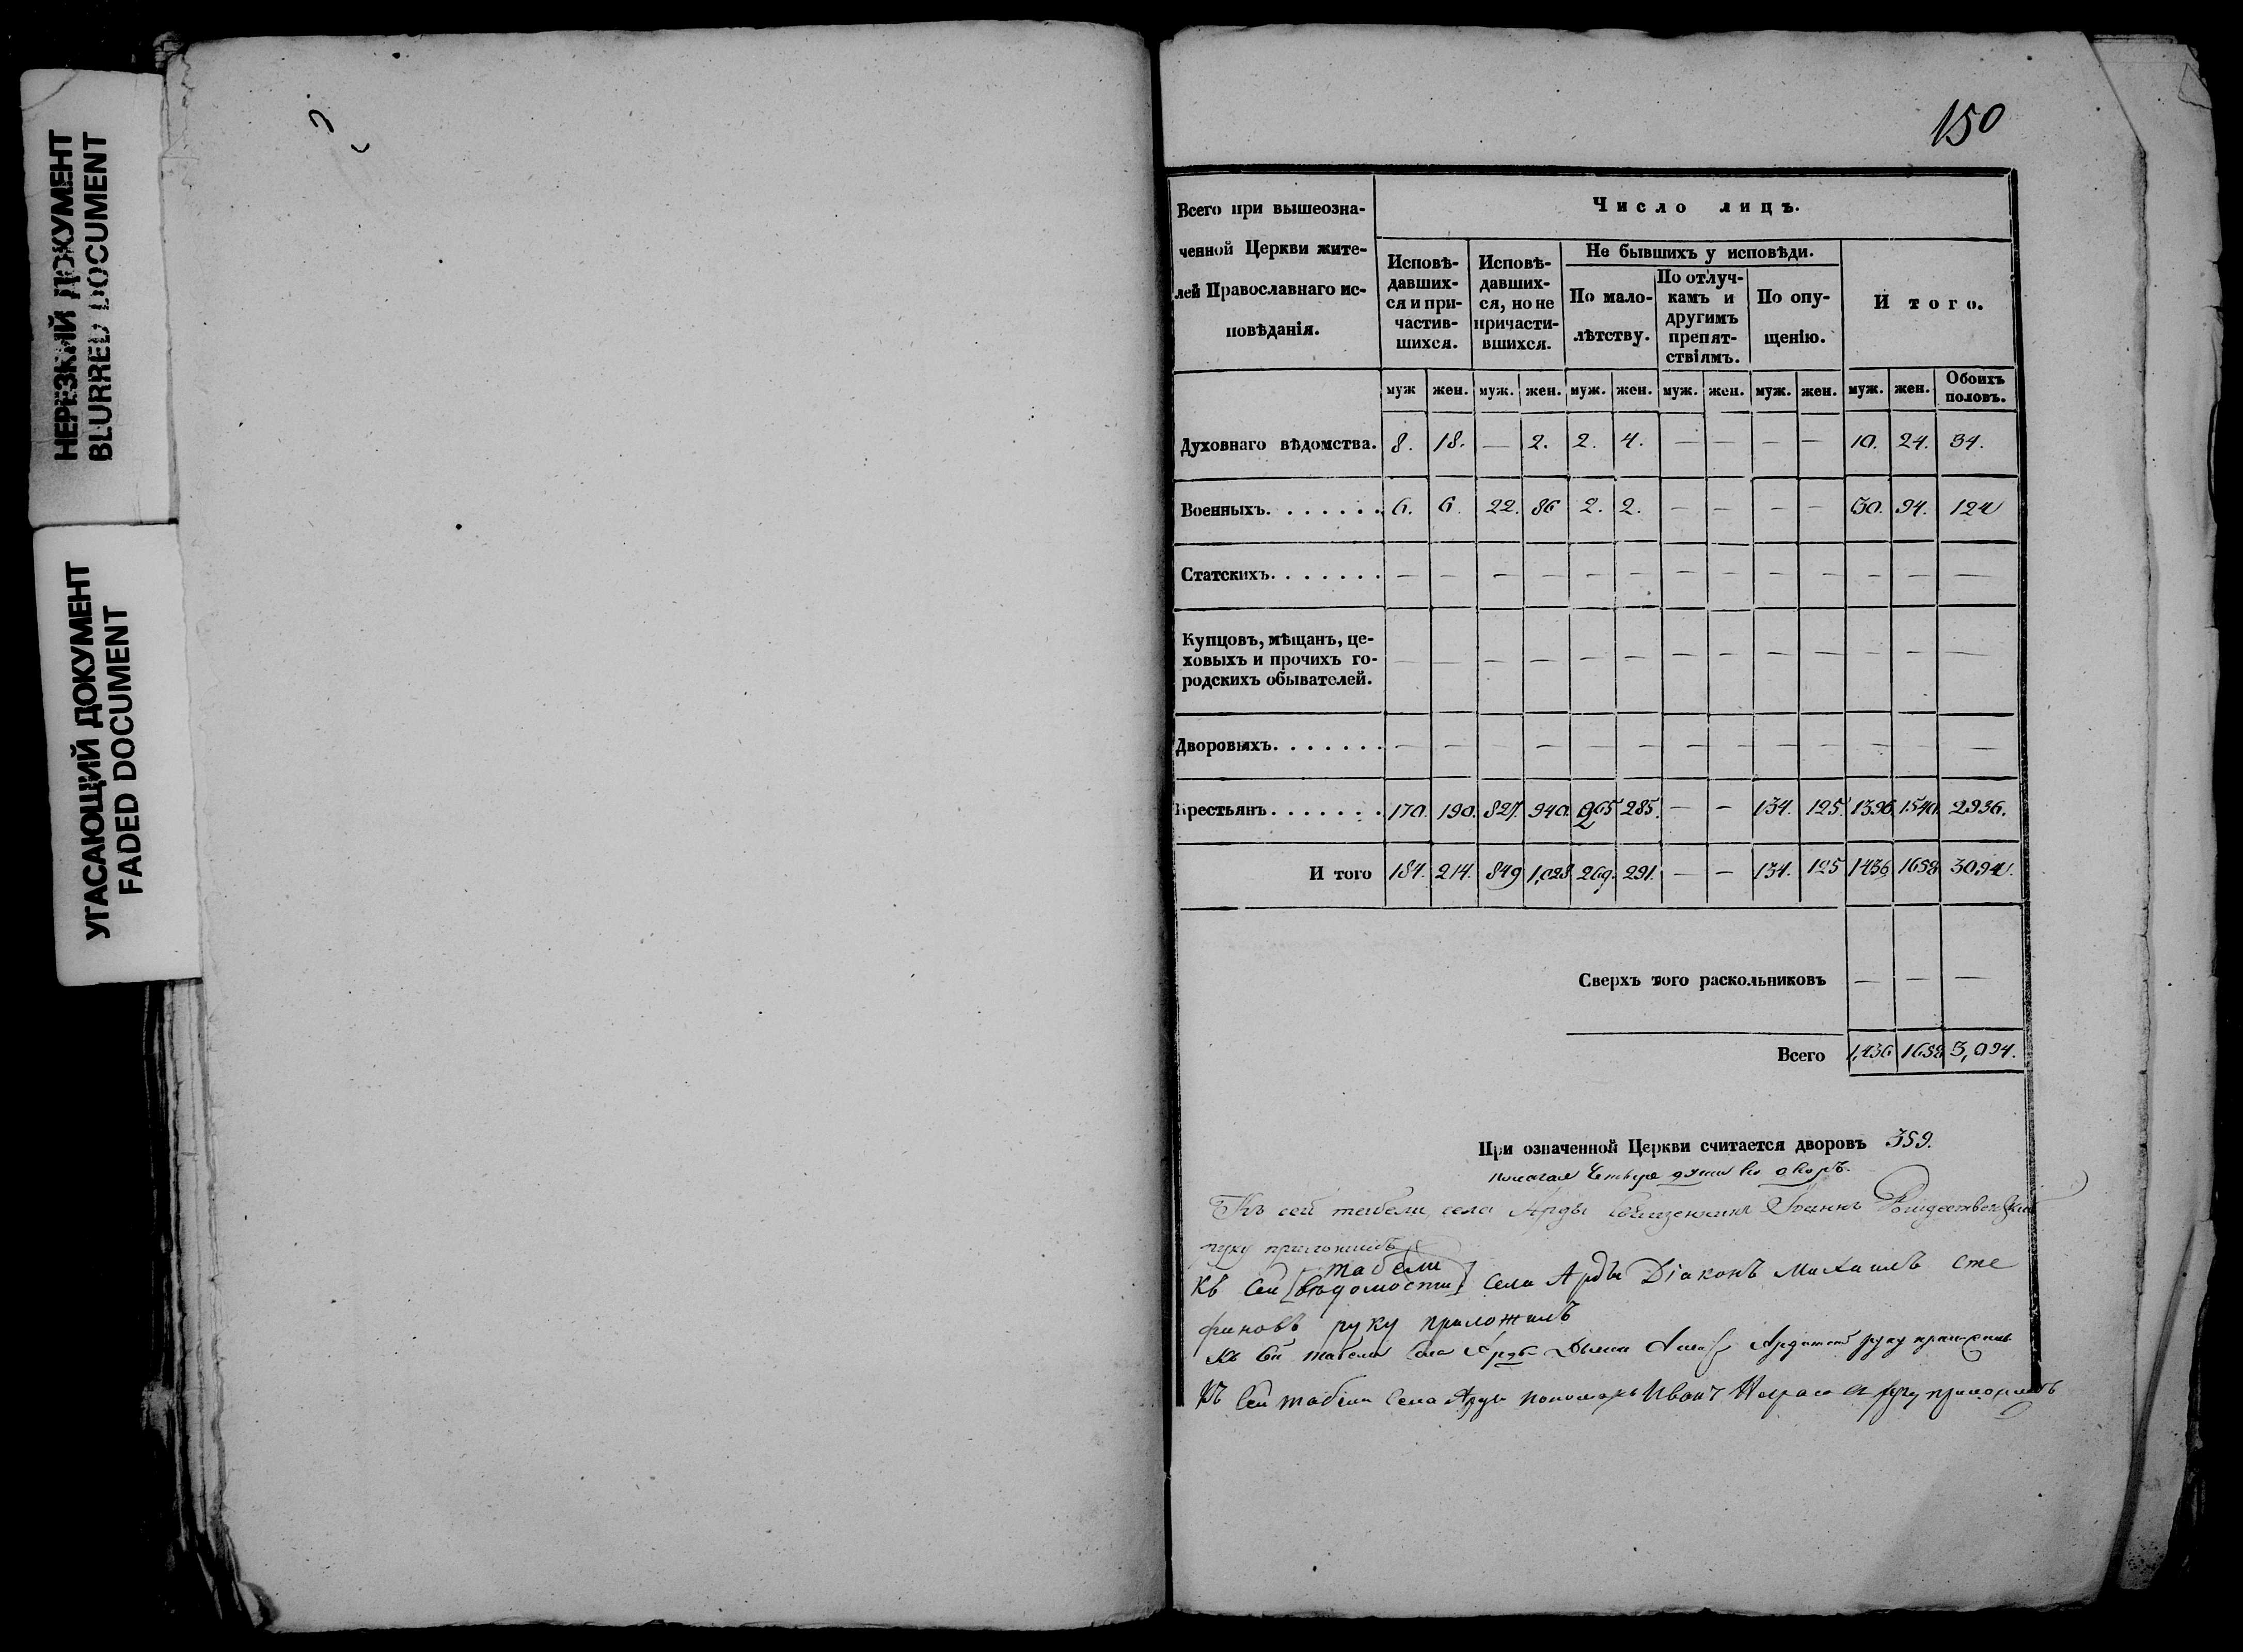 НЕРЕЗКИЙ ДОКУМЕНТ
BLURRED DOCUMENT
УГАСАЮЩИЙ ДОКУМЕНТ
FADED DOCUMENT
150
Всего при вышеозна-
ченной Церкви жите-
лей Православнаго ис-
повѣданія.
Число лицъ.
Исповѣ-
давших-
ся и при-
частив-
шихся.
Исповѣ-
давших-
ся, но не
причасти-
вшихся.
Не бывшихъ у исповѣди.
По мало-
лѣтству.
По отлуч-
камъ и
другимъ
препят-
ствіямъ.
По опу-
щенію.
И того.
муж жен. муж. жен. муж. жен. муж. жен. муж. жен. муж. жен. Обоихъ
половъ.
Духовнаго вѣдомства. 8. 18. — 2. 2. 4. — — — — 10. 24. 34.
Военныхъ. . . . . . . 6. 6. 22. 86 2. 2. — — — — 30. 94. 124
Статскихъ. . . . . . . — — — — — — — — — — — — —
Купцовъ, мѣщанъ, це-
ховыхъ и прочихъ го-
родскихъ обывателей.
— — — — — — — — — — — — —
Дворовыхъ. . . . . . . — — — — — — — — — — — —
Крестьянъ. . . . . . . 170. 190. 827. 940. 265 285. — — 134. 125. 1396 1540. 2936.
И того 184. 214. 849 1,028 269. 291. — — 134. 125 1436 1658 3094.
Сверхъ того раскольниковъ — — —
Всего 1,436 1658 3,094.
При означенной Церкви считается дворовъ 359.
полагая четыре души во дворѣ.
Къ сей табели села Арды Священникъ Іоаннъ Рождественскій
руку приложилъ
табели
Къ сей [вѣдомости] села Арды Діаконъ Михаилъ Сте
финовъ руку приложилъ
Къ сей табели села Арды руку приложилъ
Къ сей табели села Арды пономарь Иванъ руку приложилъ